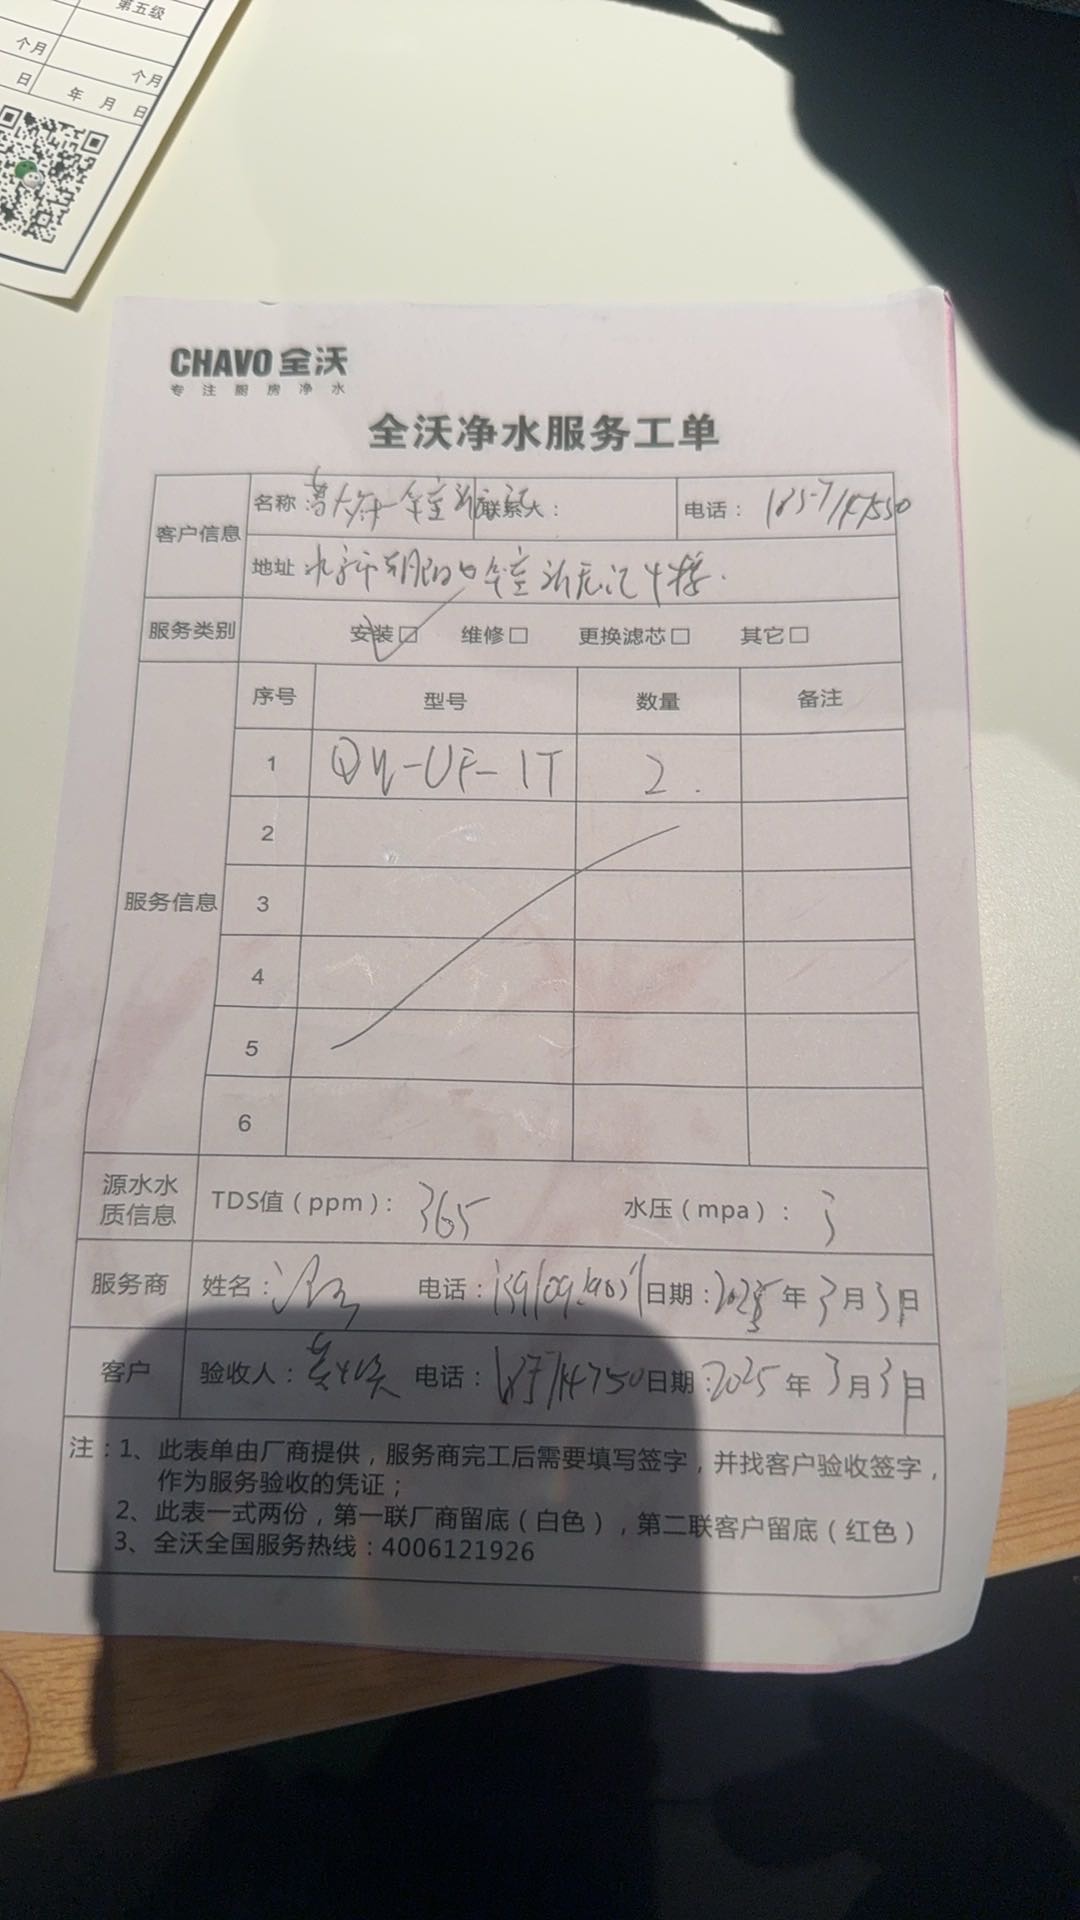 第五级
个月
个月
日
年 月 日
CHAVO 全沃
专注厨房净水
全沃净水服务工单
客户信息
名称
联系人：
电话：
地址
服务类别
安装□ 维修□ 更换滤芯□ 其它□
服务信息
序号 型号 数量 备注
1 QY-UF-1T 2
2
3
4
5
6
源水水质信息
TDS值（ppm）：365 水压（mpa）：3
服务商 姓名： 电话： 日期：2025年3月3日
客户 验收人： 电话： 日期：2025年3月3日
注：1、此表单由厂商提供，服务商完工后需要填写签字，并找客户验收签字，
作为服务验收的凭证；
2、此表一式两份，第一联厂商留底（白色），第二联客户留底（红色）
3、全沃全国服务热线：4006121926